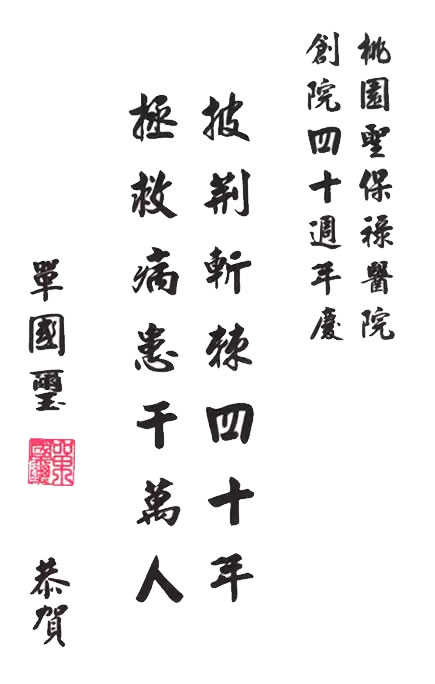 桃園聖保祿醫院
創院四十週年慶
披荆斬棘四十年
拯救病患千萬人
單國璽
單國璽
恭賀